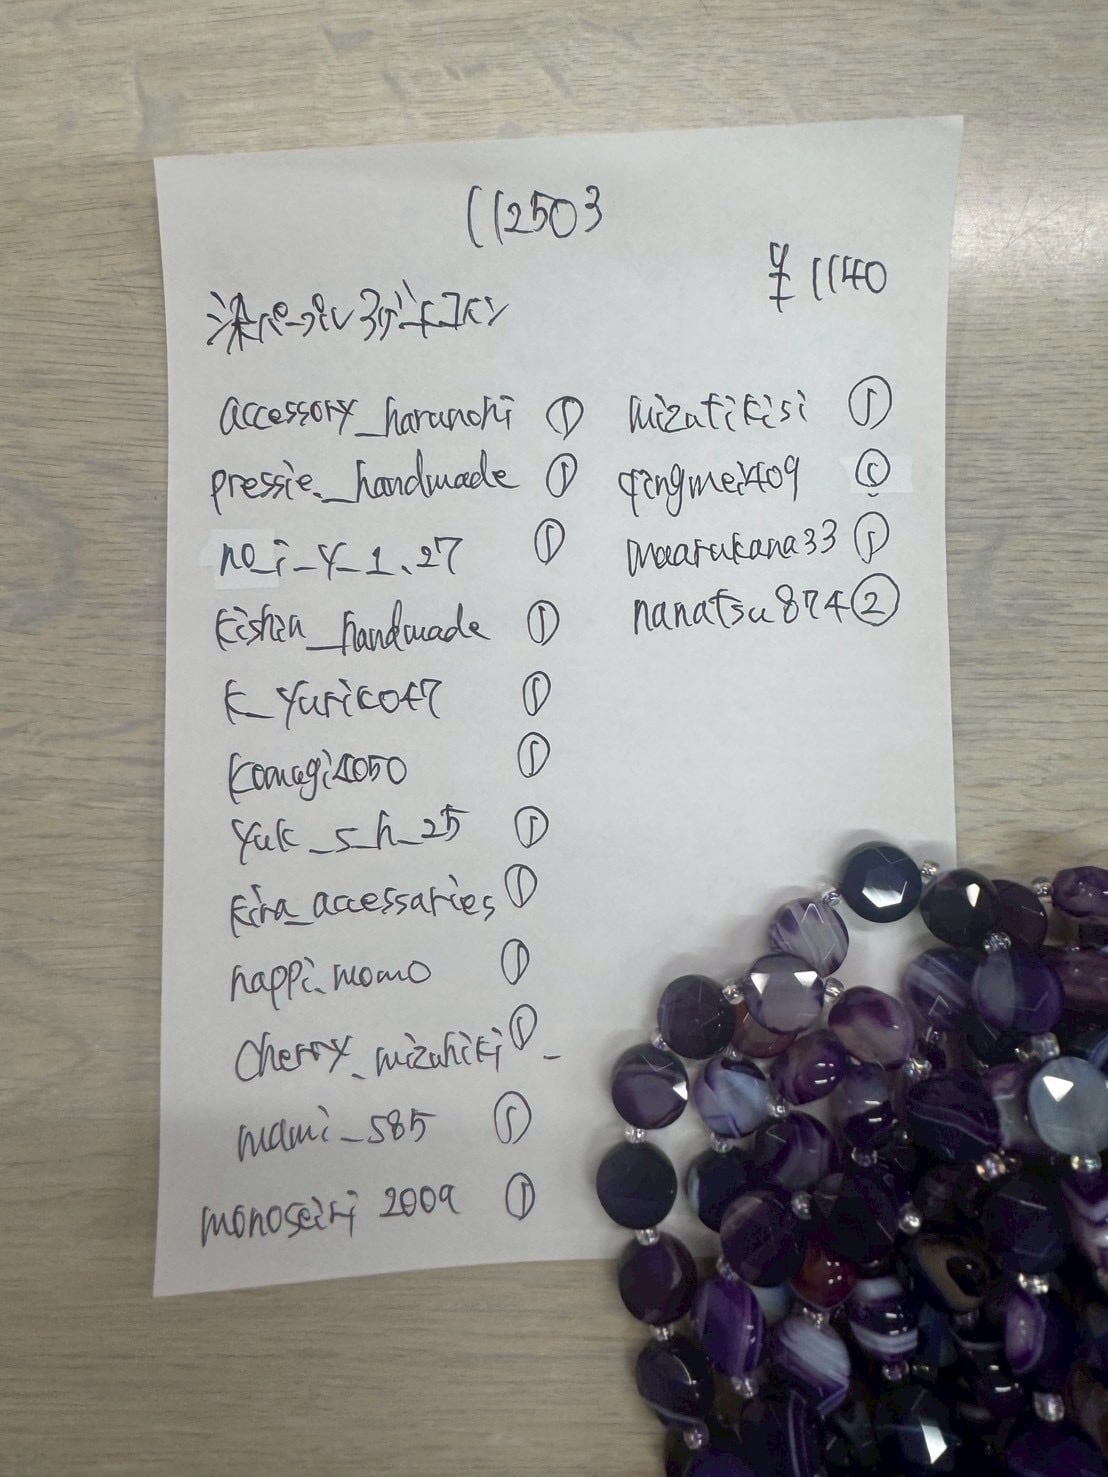 112503
¥1140
染パープルシマメノウ
accessory_harunohi ①
pressie._handmade ①
no_i_y_1.27 ①
kishia_handmade ①
k_yuriko47 ①
komugi4050 ①
yuk_s_h_25 ①
kira_accessaries ①
happi.momo ①
cherry_mizuhiki_ ①
mami_585 ①
monoseiri 2009 ①
mizutikisi ①
qingmei409 ①
maarukana33 ①
nanatsu874 ②